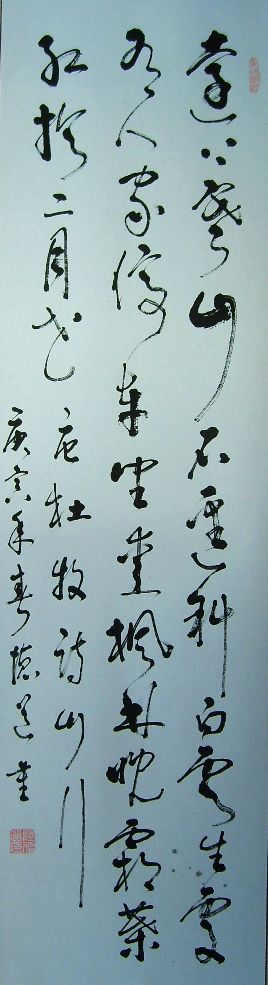 遠上寒山石逕斜白雲生處
有人家停車坐愛楓林晚霜葉
紅於二月花 唐杜牧詩山行
庚寅年春